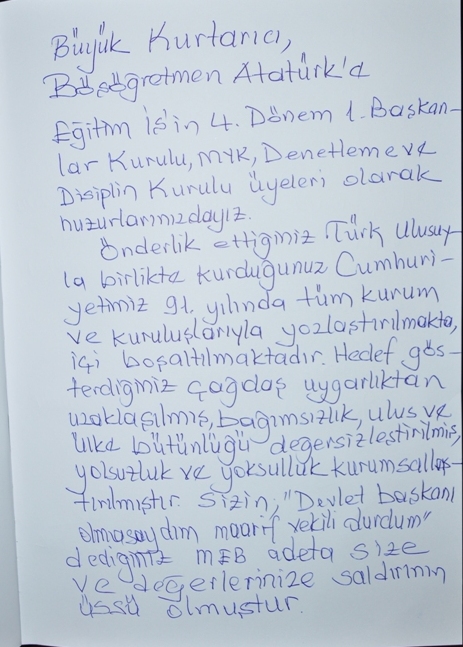 Büyük Kurtarıcı,
Başöğretmen Atatürk'e
Eğitim İş'in 4. Dönem 1. Başkan-
lar Kurulu, MYK, Denetleme ve
Disiplin Kurulu üyeleri olarak
huzurlarınızdayız.
Önderlik ettiğiniz Türk Ulusuy-
la birlikte kurduğunuz Cumhuri-
yetimiz 91. yılında tüm kurum
ve kuruluşlarıyla yozlaştırılmakta,
içi boşaltılmaktadır. Hedef gös-
terdiğiniz çağdaş uygarlıktan
uzaklaşılmış, bağımsızlık, ulus ve
ülke bütünlüğü değersizleştirilmiş,
yolsuzluk ve yoksulluk kurumsallaş-
tırılmıştır. Sizin; "Devlet başkanı
olmasaydım maarif vekili olurdum"
dediğiniz MEB adeta size
ve değerlerinize saldırının
üssü olmuştur.